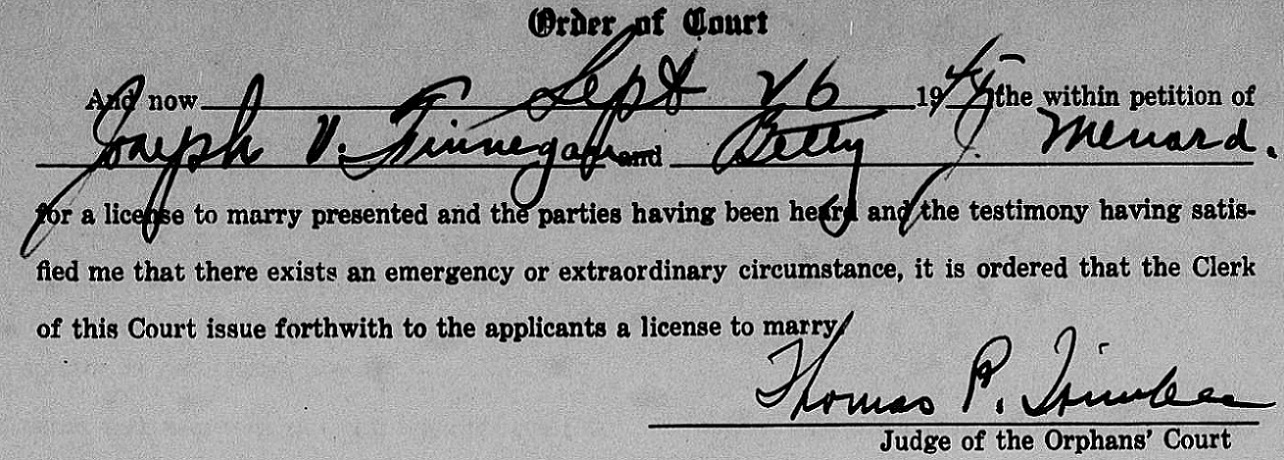 Order of Court
And now Sept 26 1945 the within petition of
Joseph V. Finnegan and Betty J. Menard.
for a license to marry presented and the parties having been heard and the testimony having satis-
fied me that there exists an emergency or extraordinary circumstance, it is ordered that the Clerk
of this Court issue forthwith to the applicants a license to marry
Thomas P.
Judge of the Orphans' Court